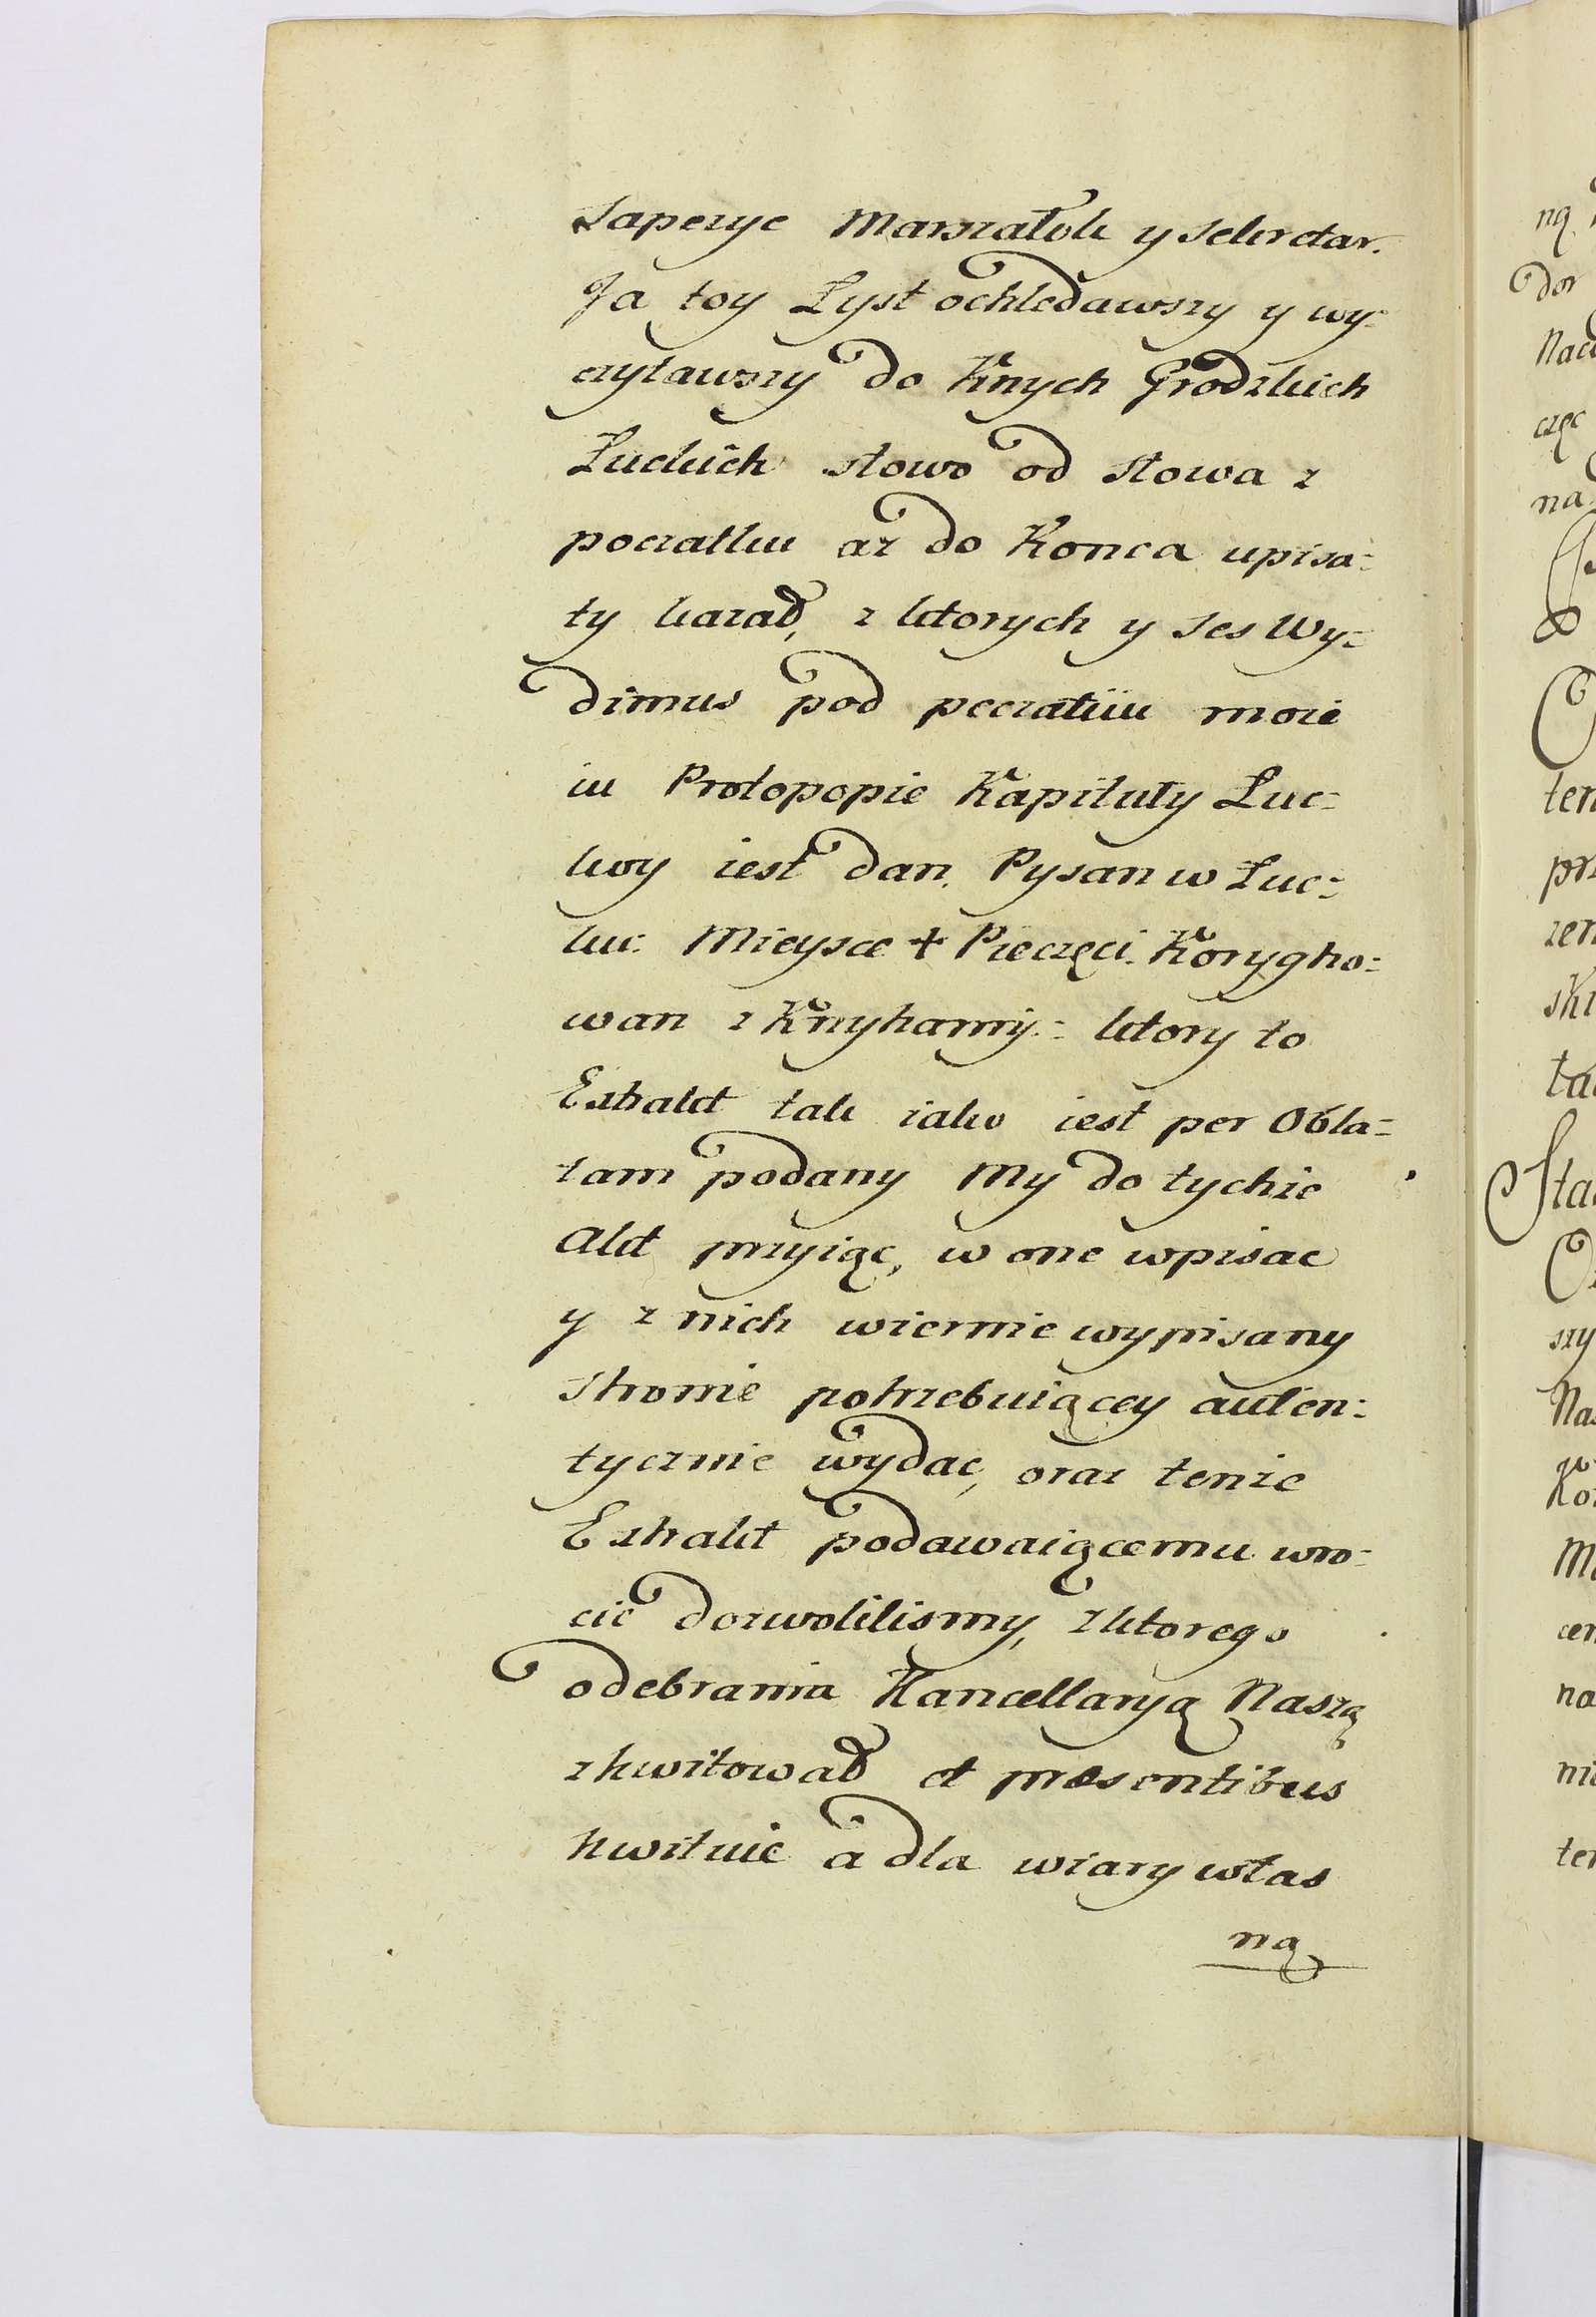 Sapezye Marszałok y Sekretar.
Ja toy Lyst ochledawszy y wy=
czytawszy do Knych Grodzkich
Luckich słowo od słowa z
poczatku az do Konca upisa=
ty kazał, z ktorych y ses Wy=
dimus pod peczatiiu moie
iu Protopopie Kapituły Luc=
koy iest dan. Pysan w Luc=
ku. Mieysce + Pieczęci. Korygho=
wan z Knyhamy.= ktory to
Extrakt tak iako iest per Obla=
tam podany My do tychże
Akt przyiąc, w one wpisac
y z nich wiernie wypisany
stronie potrzebuiącey auten=
tycznie wydac, oraz tenże
Extrakt podawaiącemu wro=
cić dozwolilismy, z ktorego
odebrania Kancellaryą Naszą
zkwitował et præsentibus
kwituie a dla wiary włas
ną